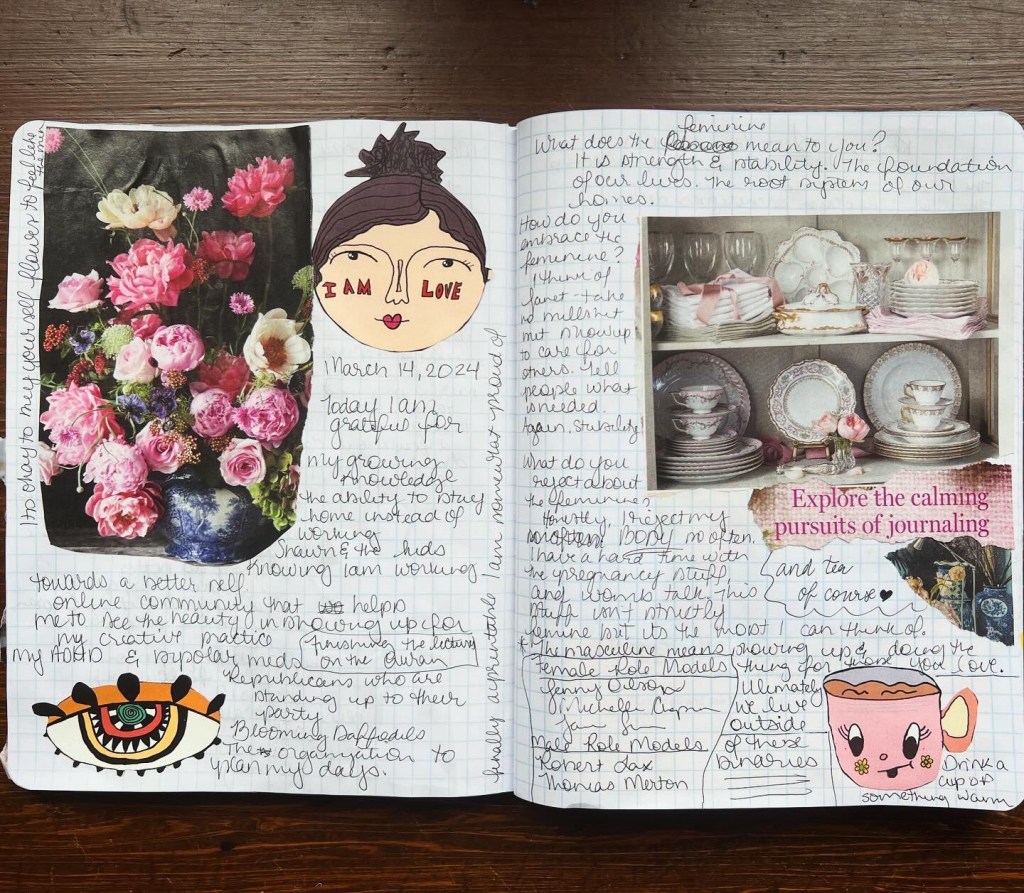 Its okay to mcy yourself flowers to feel like the men
I AM LOVE
March 14, 2024
Today I am
grateful for
my growing
knowledge
the ability to stay
home instead of
working
Shawn & the kids
Knowing I am working
towards a better self
online community that helps
me to see the beauty in showing up for
my creative practice
my ADHD & Bipolar meds
finishing the lectures
on the Quran
Republicans who are
standing up to their
party
Blooming Daffodils
The organization to
plan my days.
finally appreciate & I am somewhat proud of
feminine
What does the mean to you?
It is strength & stability. The foundation
of our lives. The root system of our
homes.
How do you
embrace the
feminine?
I think of
Janet - take
no bullshit
but show up
to care for
others. Tell
people what
is needed.
Again, stability!
What do you
reject about
the feminine?
Honestly, I reject my
BODY so often.
I have a hard time with
the pregnancy stuff,
and womb talk. This
stuff isn't strictly
femine but its the most I can think of.
* The masculine means showing up & doing the
thing for those you love.
Explore the calming
pursuits of journaling
and tea
of course ♥
Female Role Models
Jenny Olson
Michelle
Male Role Models
Robert Lax
Thomas Merton
Ultimately
we live
outside
of these
binaries
Drink a
cup of
something warm